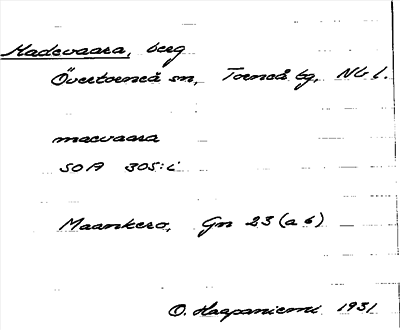 Madevaara, berg
Övertorneå sn, Torneå tg, Nb l.
maevaara
SOA 305:i
Maankero, Gn 23 (a 6)
O. Haapaniemi 1931